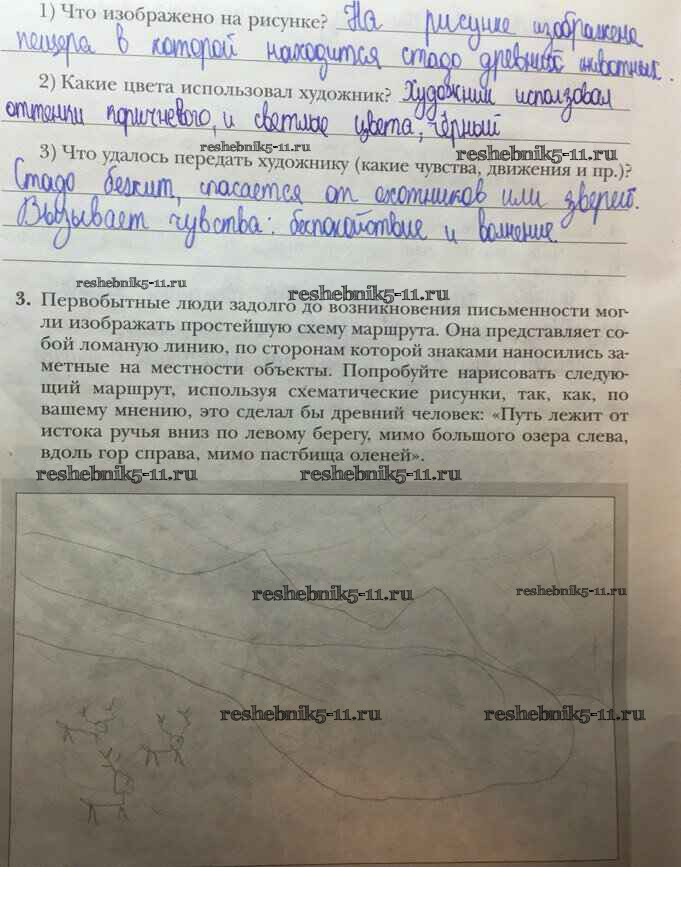 1) Что изображено на рисунке? На рисунке изображена
пещера в которой находится стадо древних животных.
2) Какие цвета использовал художник? Художник исползовал
оттенки коричневого, и светлые цвета, чёрный
reshebnik5-11.ru
reshebnik5-11.ru
3) Что удалось передать художнику (какие чувства, движения и пр.)?
Стадо бежит, спасается от охотников или зверей.
Вызывает чувства: беспокойствие и волнение
reshebnik5-11.ru
reshebnik5-11.ru
3. Первобытные люди задолго до возникновения письменности мог-
ли изображать простейшую схему маршрута. Она представляет со-
бой ломаную линию, по сторонам которой знаками наносились за-
метные на местности объекты. Попробуйте нарисовать следую-
щий маршрут, используя схематические рисунки, так, как, по
вашему мнению, это сделал бы древний человек: «Путь лежит от
истока ручья вниз по левому берегу, мимо большого озера слева,
вдоль гор справа, мимо пастбища оленей».
reshebnik5-11.ru
reshebnik5-11.ru
reshebnik5-11.ru
reshebnik5-11.ru
reshebnik5-11.ru
reshebnik5-11.ru